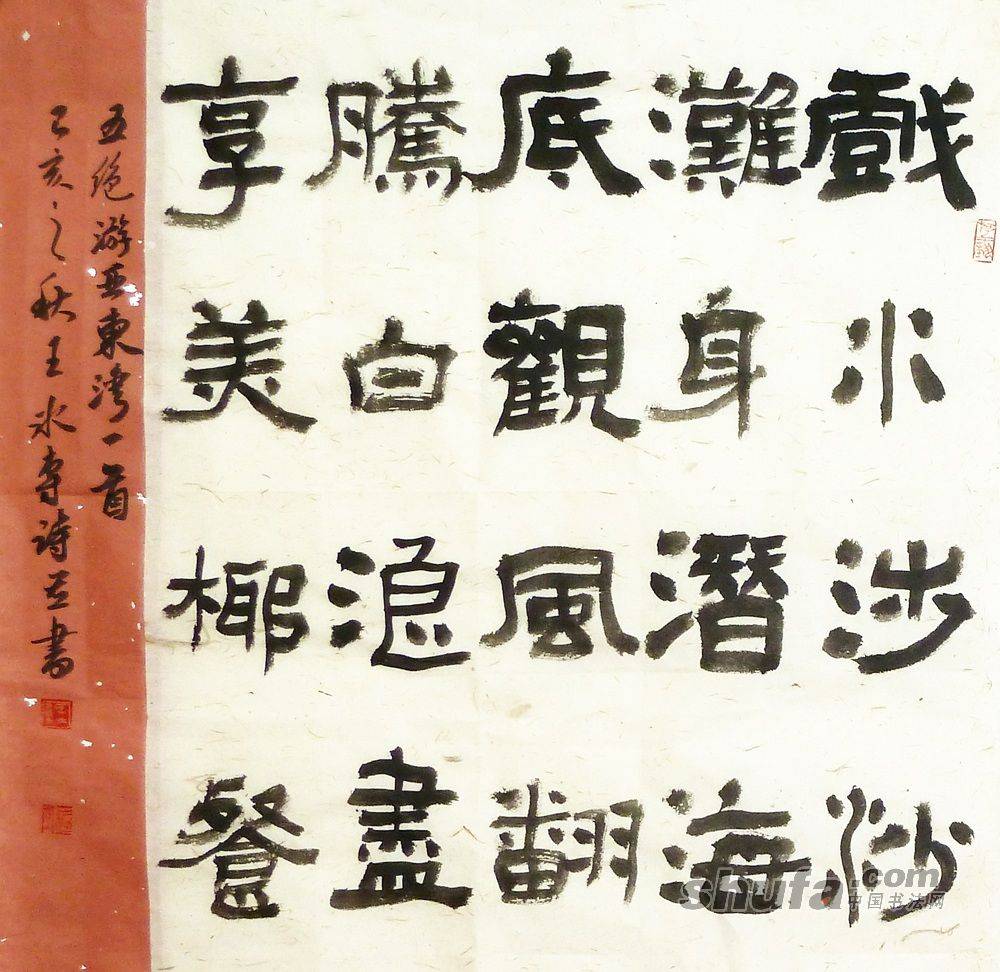 戲水涉沙
灘身潛海
底觀風翻
騰白浪盡
享美椰餐
五绝游亚東湾一首
乙亥之秋王永専诗并書
shufa.com
中国书法网